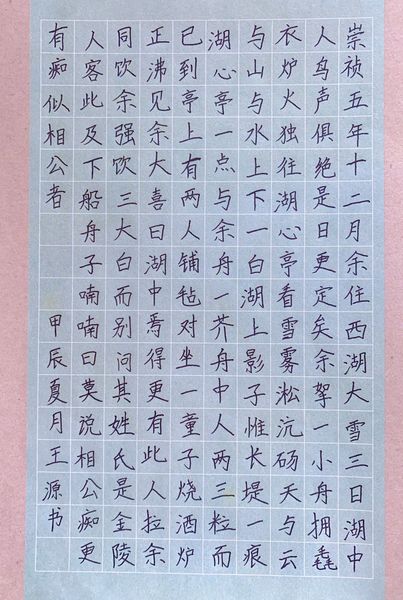 崇祯五年十二月余住西湖大雪三日湖中
人鸟声俱绝是日更定矣余挐一小舟拥毳
衣炉火独往湖心亭看雪雾凇沆砀天与云
与山与水上下一白湖上影子惟长堤一痕
湖心亭一点与余舟一芥舟中人两三粒而
已到亭上有两人铺毡对坐一童子烧酒炉
正沸见余大喜曰湖中焉得更有此人拉余
同饮余强饮三大白而别问其姓氏是金陵
人客此及下船舟子喃喃曰莫说相公痴更
有痴似相公者 甲辰夏月王源书